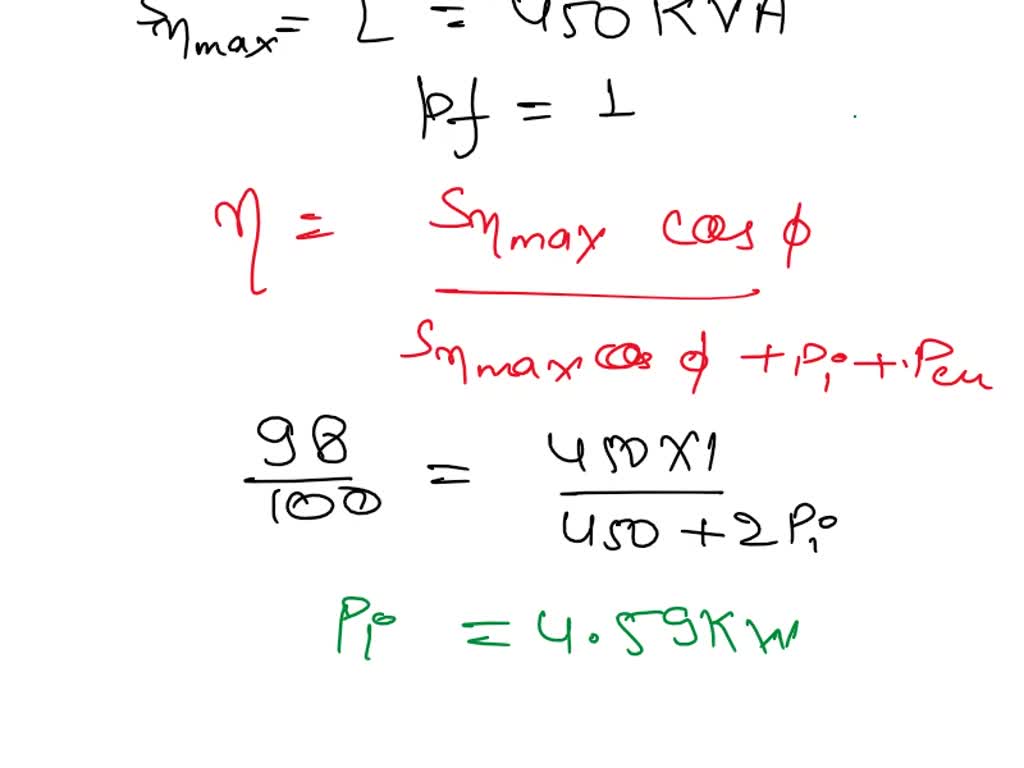 Sηmax = L = 450 KVA
pf = 1
η = Sηmax cos ϕ
Sηmax cos ϕ + Pi + Pcu
98/100 = 450×1/450 + 2Pi
Pi = 4.59 KW